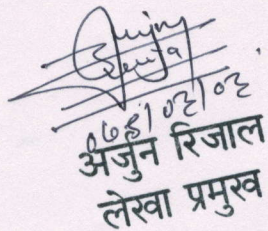 ०७६/०३/०३
अर्जुन रिजाल
लेखा प्रमुख